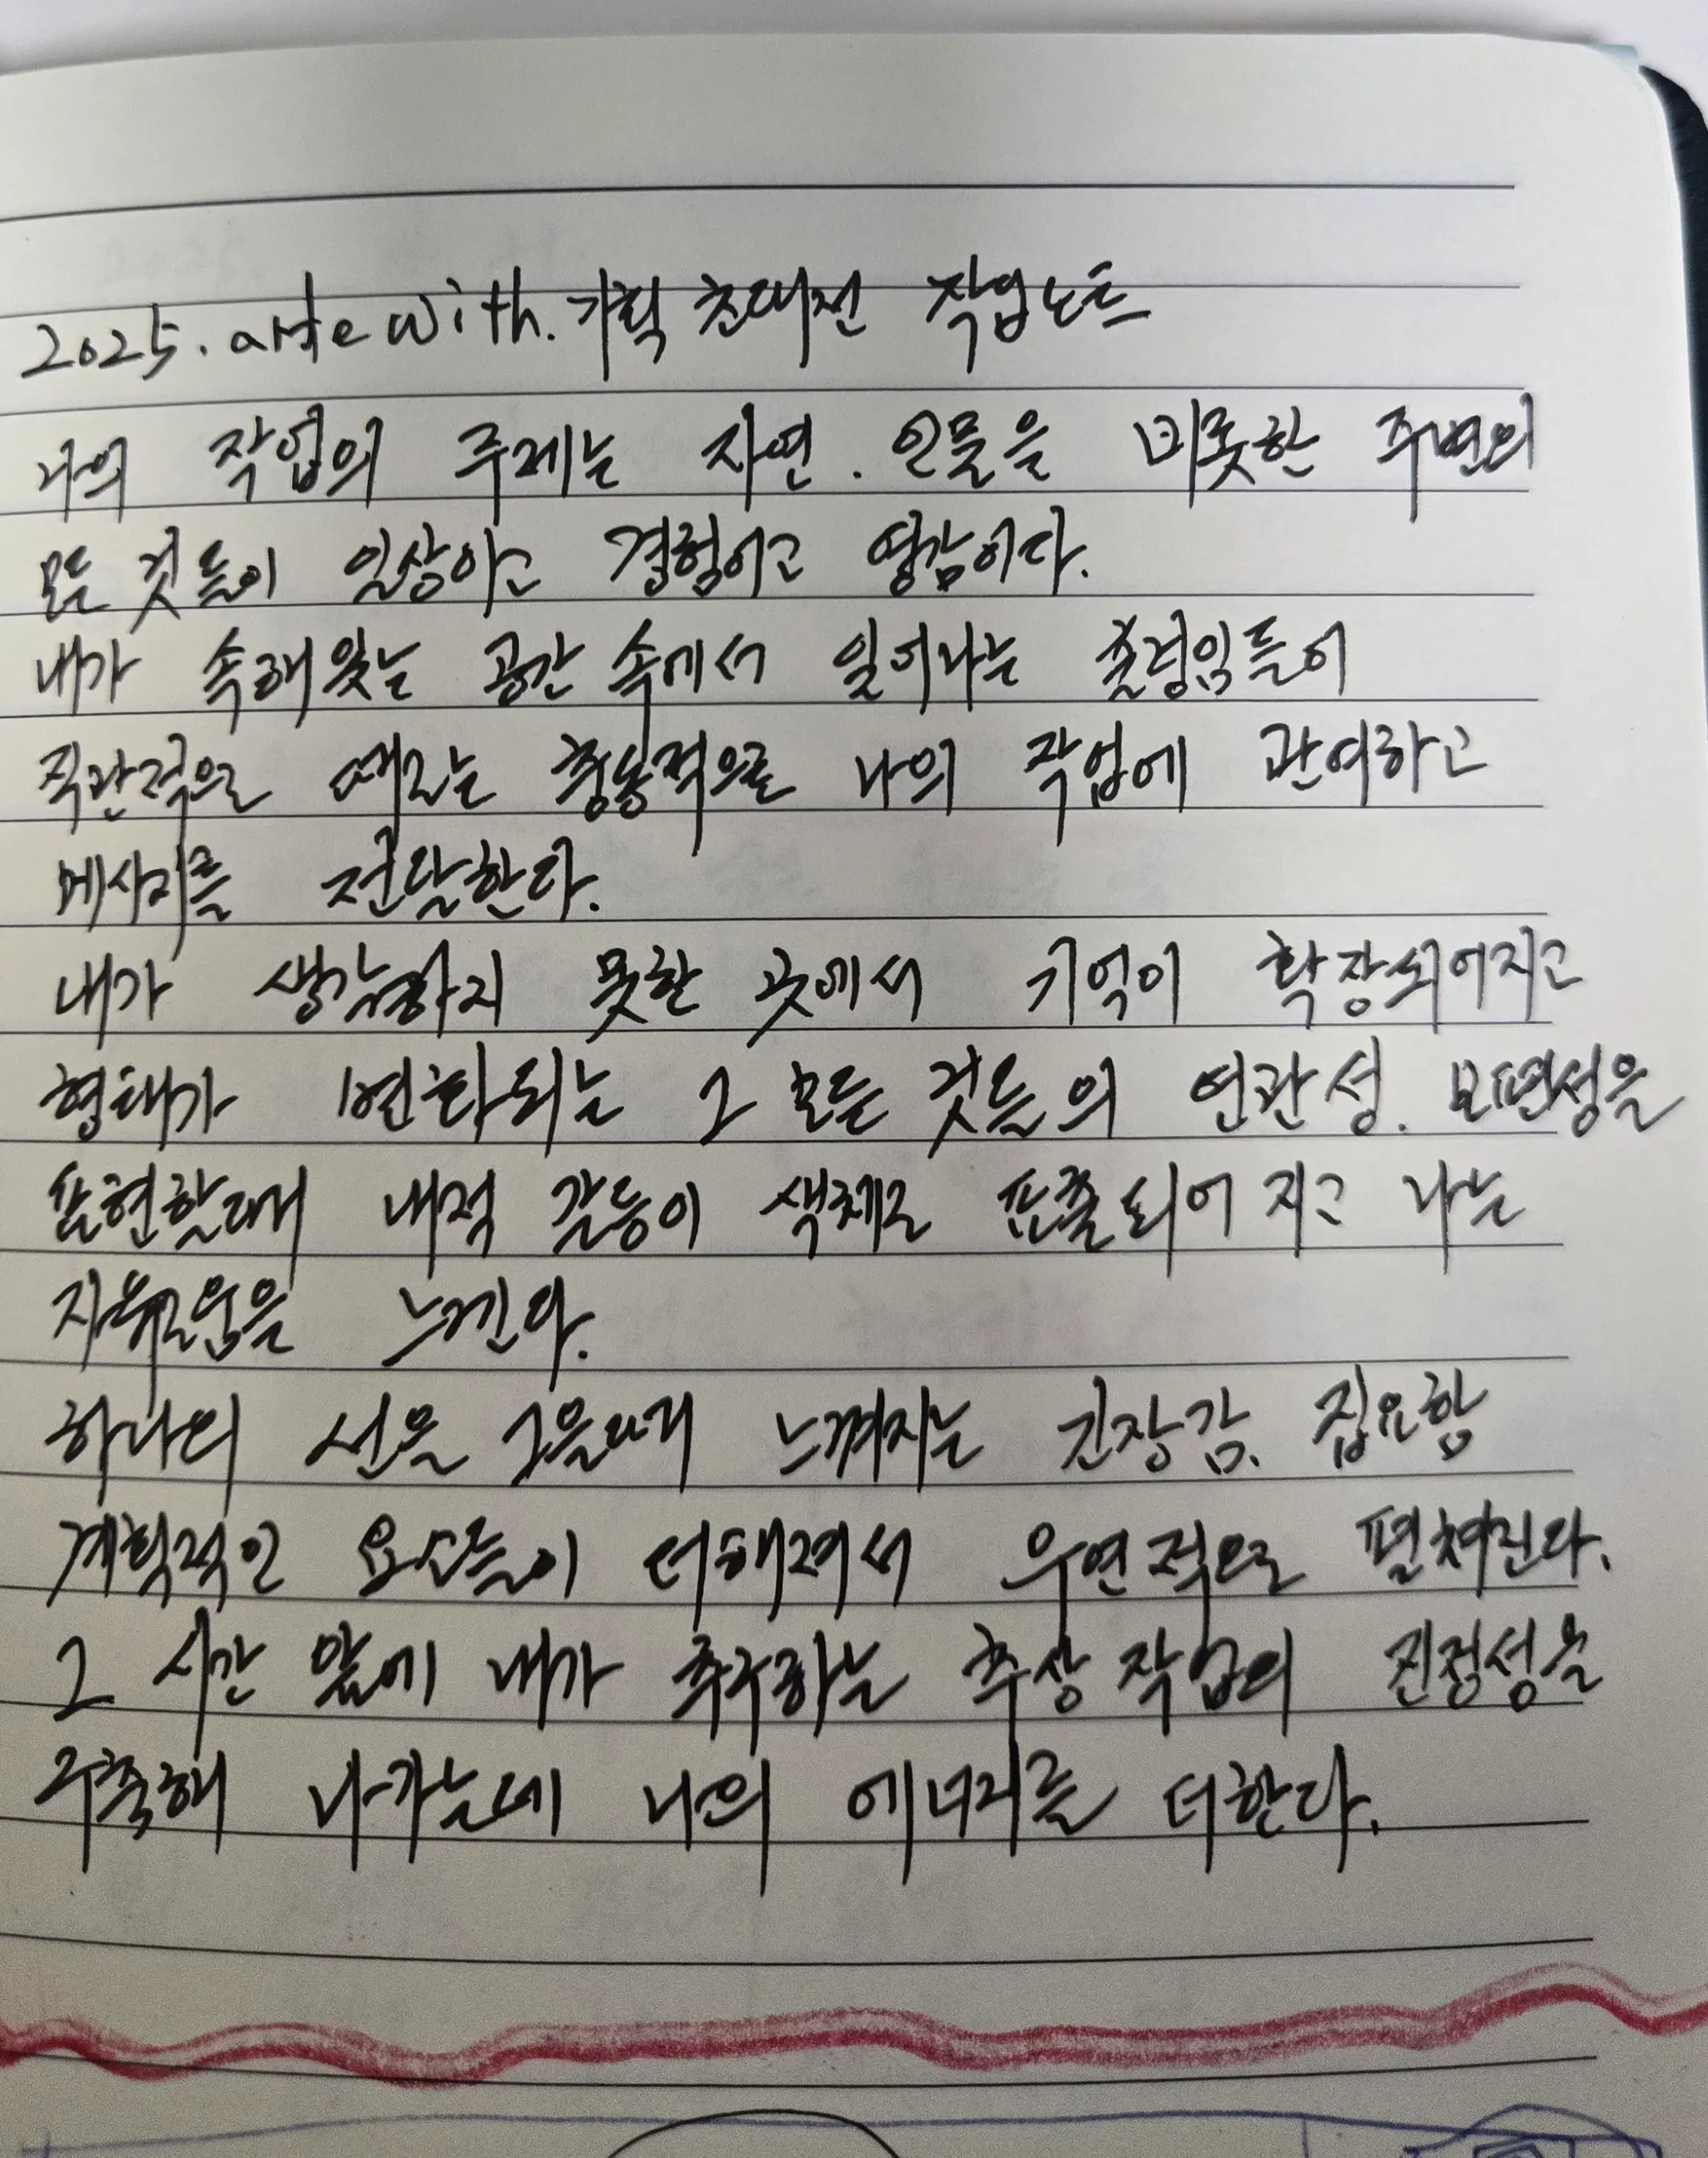 2025. arte with. 기획 초대전 작업노트
나의 작업의 주제는 자연. 인물을 비롯한 주변의
모든 것들이 일상이고 경험이고 영감이다.
내가 속해있는 공간 속에서 일어나는 출렁임들이
직관적으로 때로는 충동적으로 나의 작업에 관여하고
메세지를 전달한다.
내가 생각하지 못한 곳에서 기억이 확장되어지고
형태가 변화되는 그 모든 것들의 연관성. 보편성을
표현할때 내적 갈등이 색채로 표출되어 지고 나는
자유로움을 느낀다.
하나의 선을 그을때 느껴지는 긴장감. 집요함
계획적인 요소들이 더해져서 우연적으로 펼쳐진다.
그 시간 앞에 내가 추구하는 추상작업의 진정성을
구축해 나가는데 나의 에너지를 더한다.